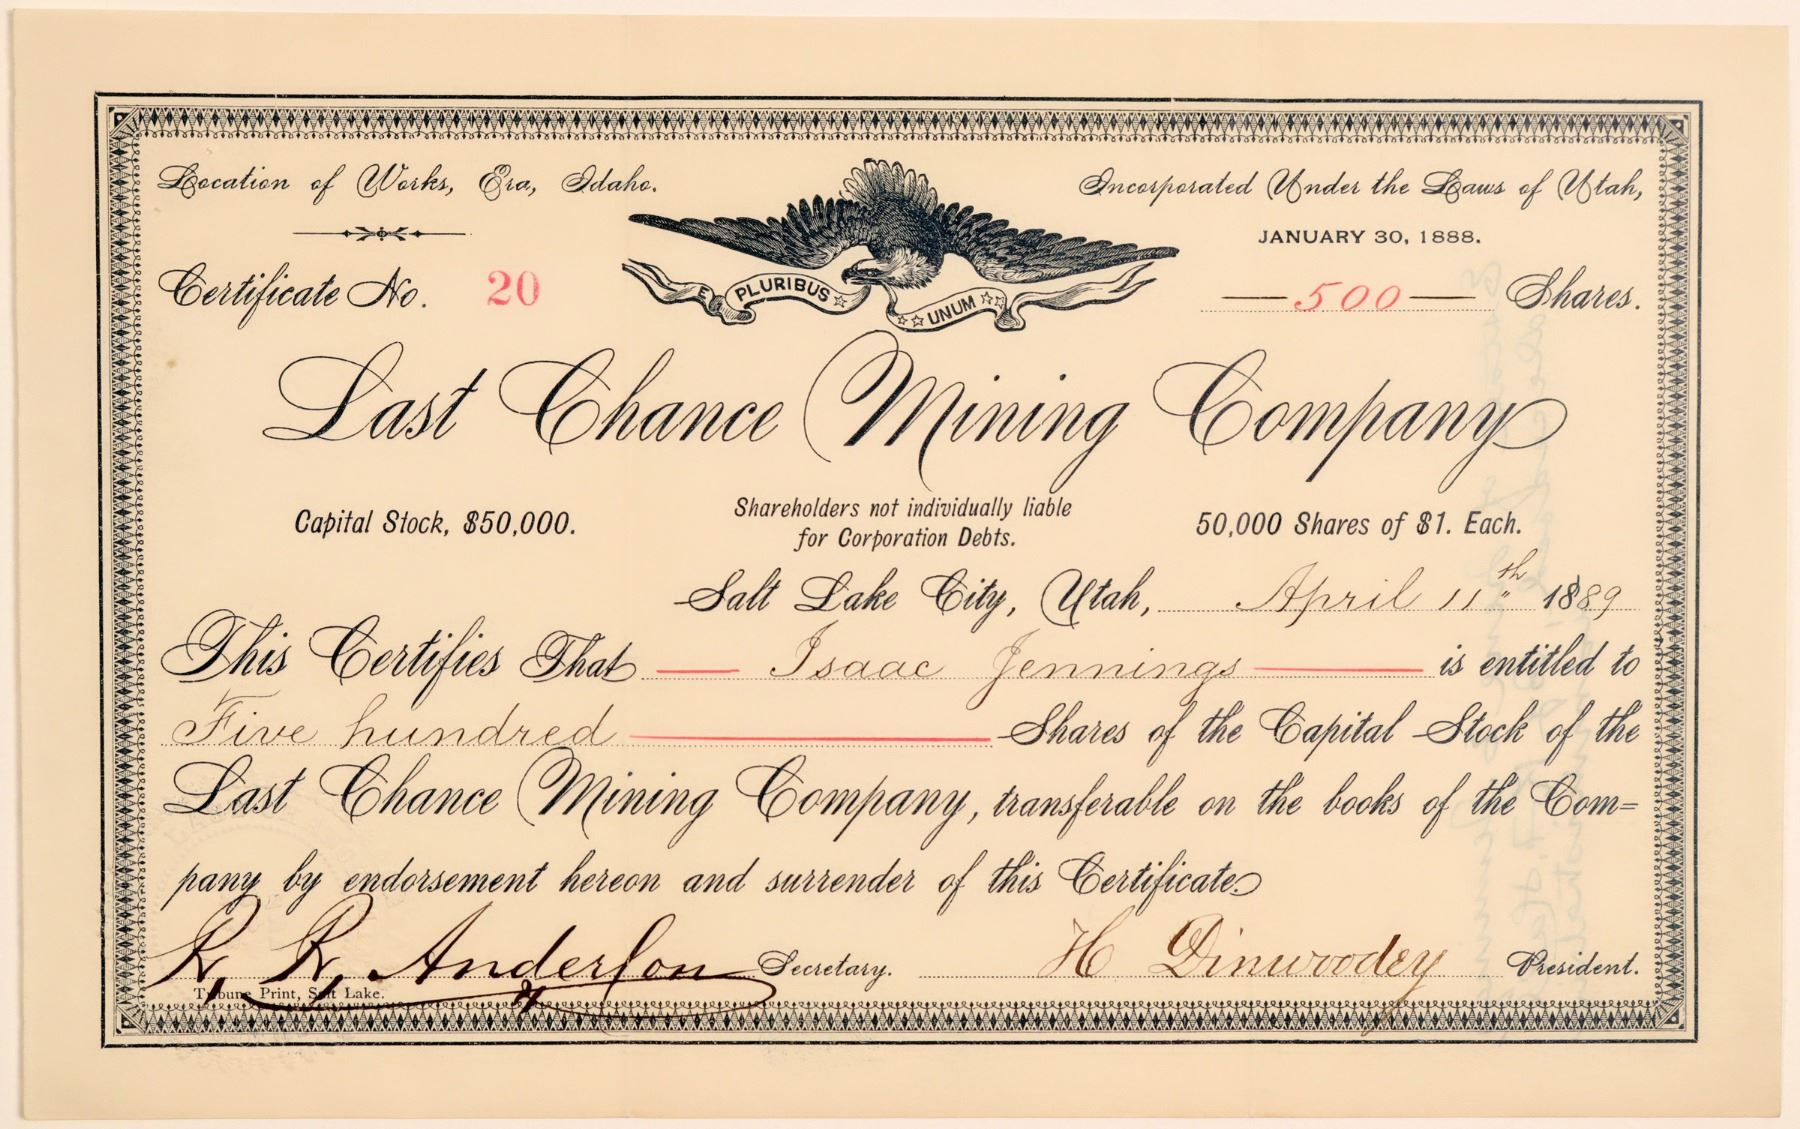 Location of Works, Era, Idaho.
Incorporated Under the Laws of Utah,
JANUARY 30, 1888.
Certificate No. 20
500 Shares.
E PLURIBUS UNUM
Last Chance Mining Company
Capital Stock, $50,000.
Shareholders not individually liable
for Corporation Debts.
50,000 Shares of $1. Each.
Salt Lake City, Utah, April 11th 1889
This Certifies That Isaac Jennings is entitled to
Five hundred Shares of the Capital Stock of the
Last Chance Mining Company, transferable on the books of the Com=
pany by endorsement hereon and surrender of this Certificate.
R. R. Anderson Secretary. H Dinwoodey President.
Tribune Print, Salt Lake.